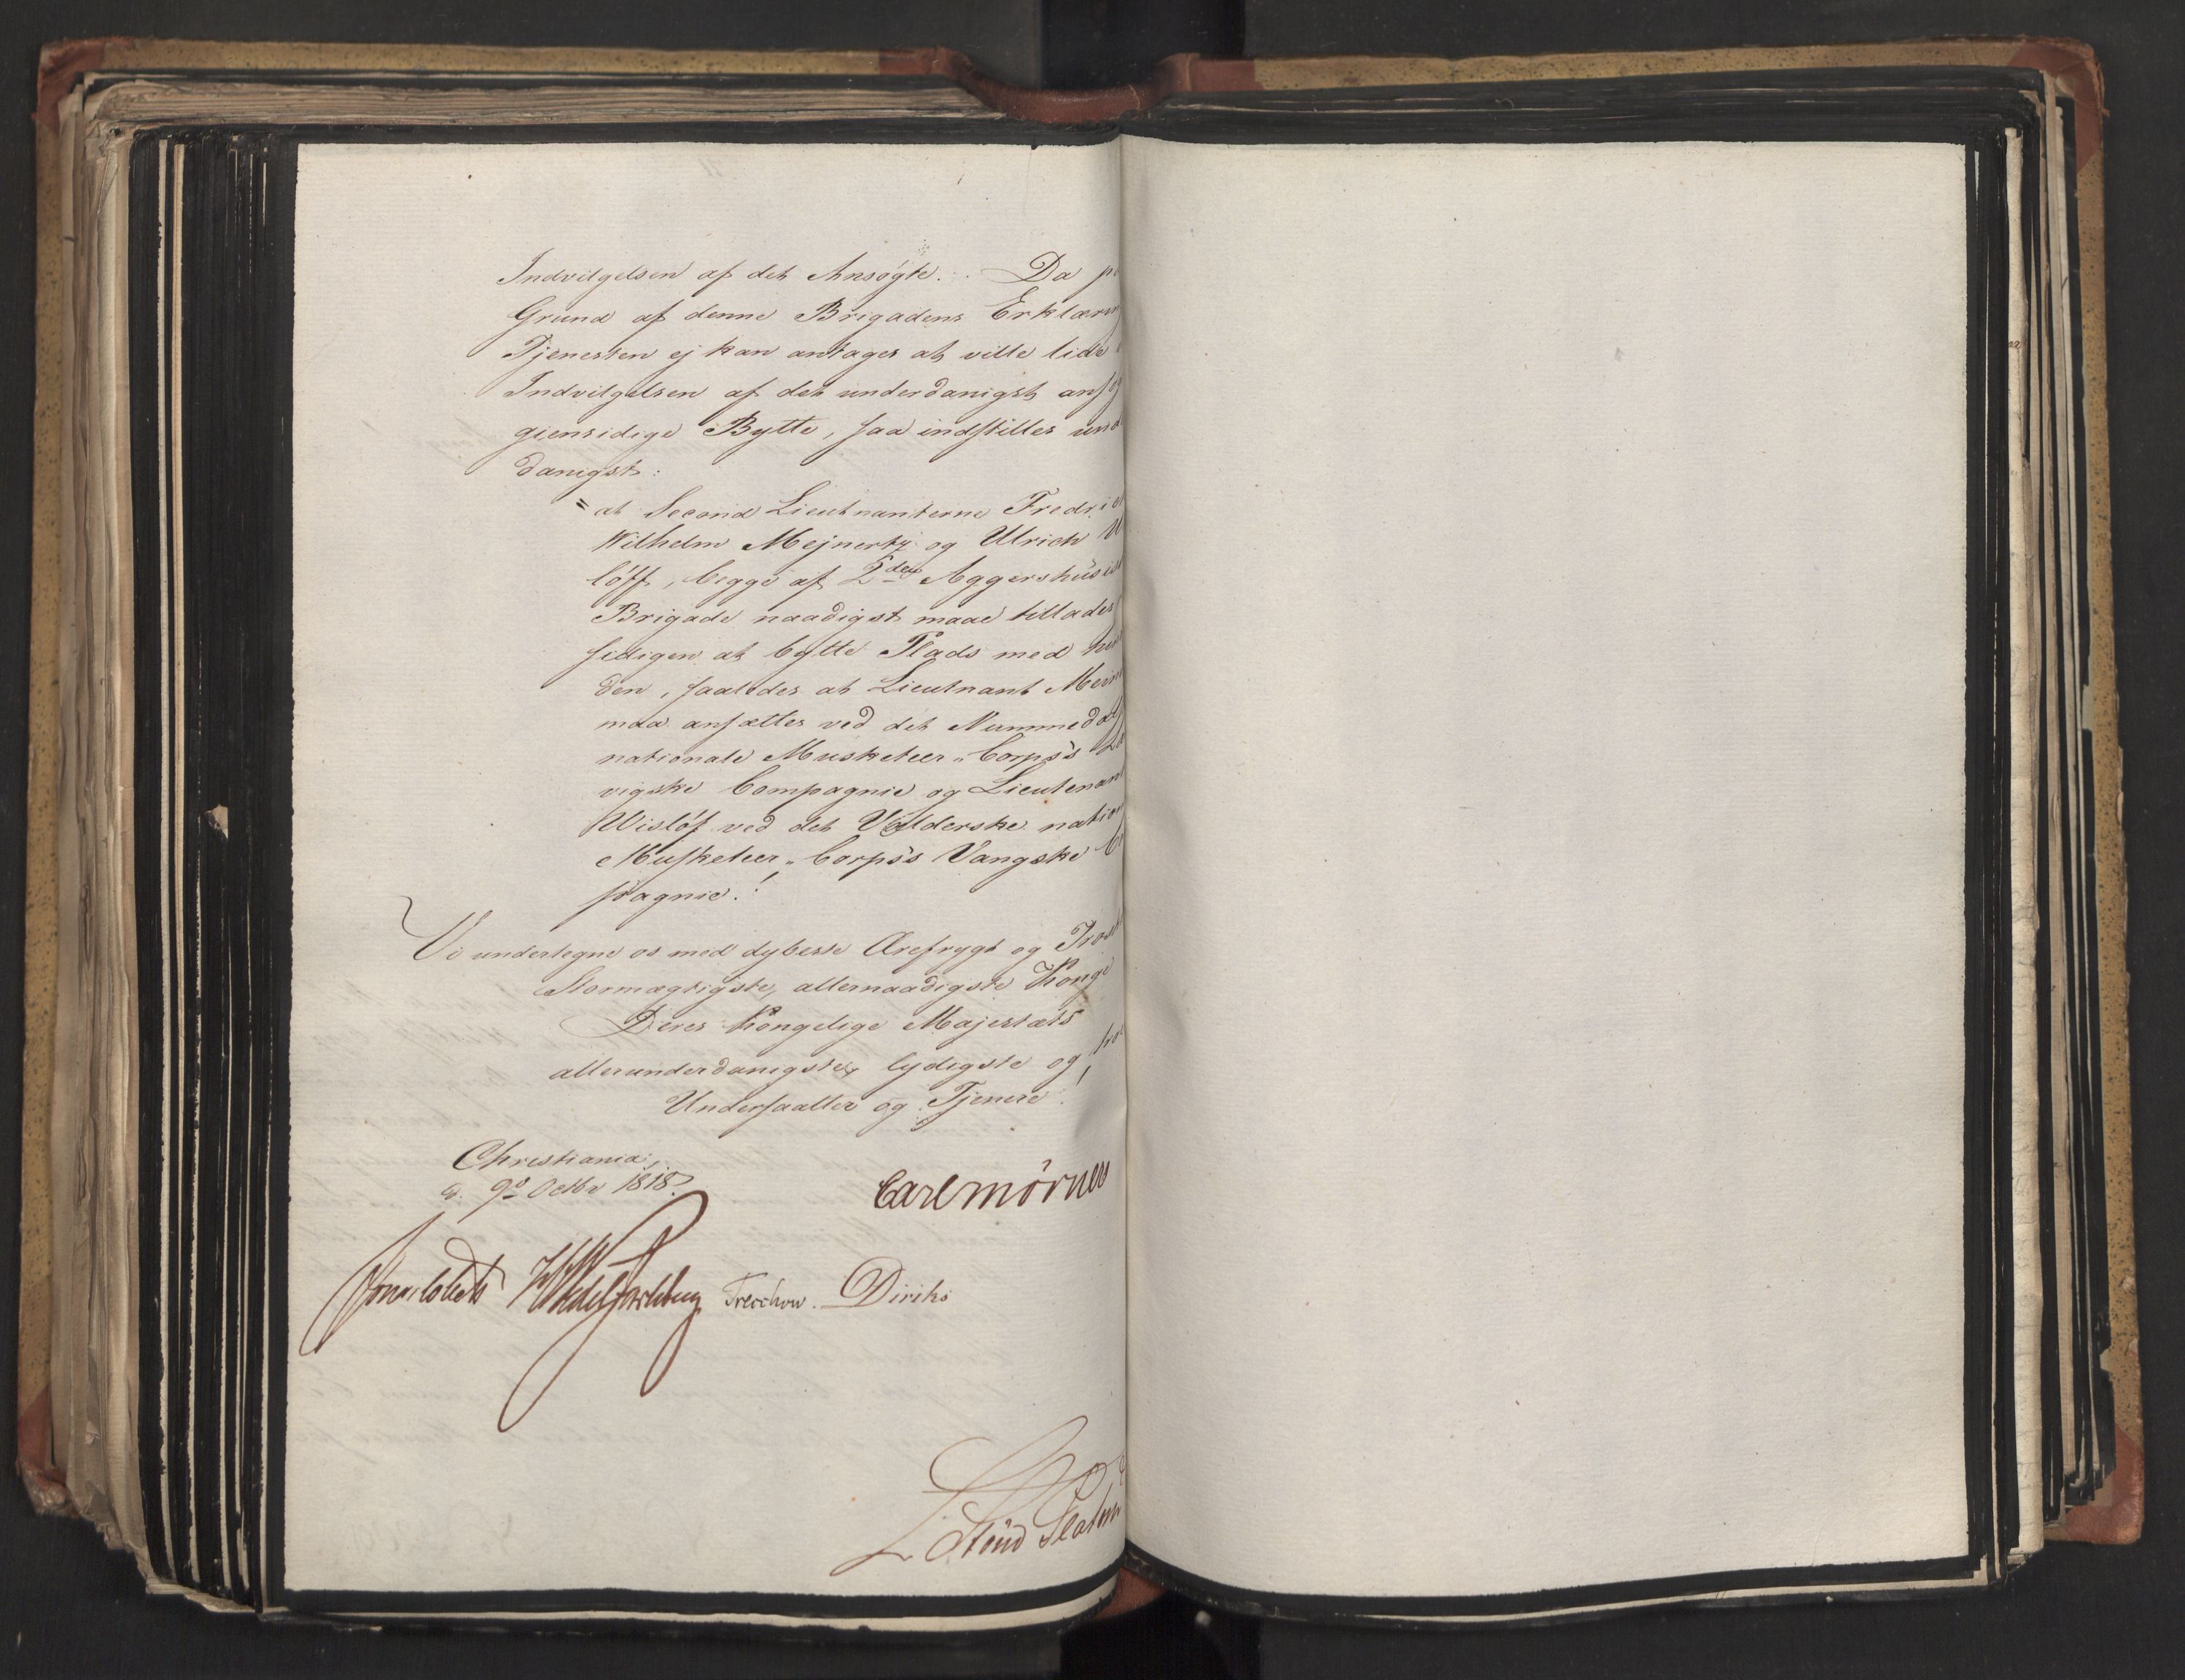 Indvilgelsen af det Ansøgte. Da
Grund af denne Brigadens Erklærin
Tjenesten ej kan antages at ville lide
Indvilgelsen af det underdanigst ansøg
giensidige Bytte, saa indstilles und
danigst:
= at Second Lieutnanterne Fredric
Wilhelm Mejnertz og Ulrich W
löff, begge af 2den Aggershusisk
Brigade naadigst maae tillades
sidigen at bytte Plads med hin
den, saaledes at Lieutnant Mein
maa ansættes ved det Nummedal
nationale Musketeer-Corps's
vigske Compagnie og Lieutenant
Wisløf ved det Valderske nation
Musketeer-Corps's Vangske Co
pagnie!
Vi undertegne os med dybeste Ærefrygt og Trosk
Stormægtigste, allernaadigste Konge
Deres Kongelige Majestæts
allerunderdanigste, lydigste og tro
Undersaatter og Tjenere!
Christiania,
d. 9de Octbr 1818.
Carl Mörner
Jonas Collett HWedelJarlsberg Treschow. Diriks
L Stoud Platou